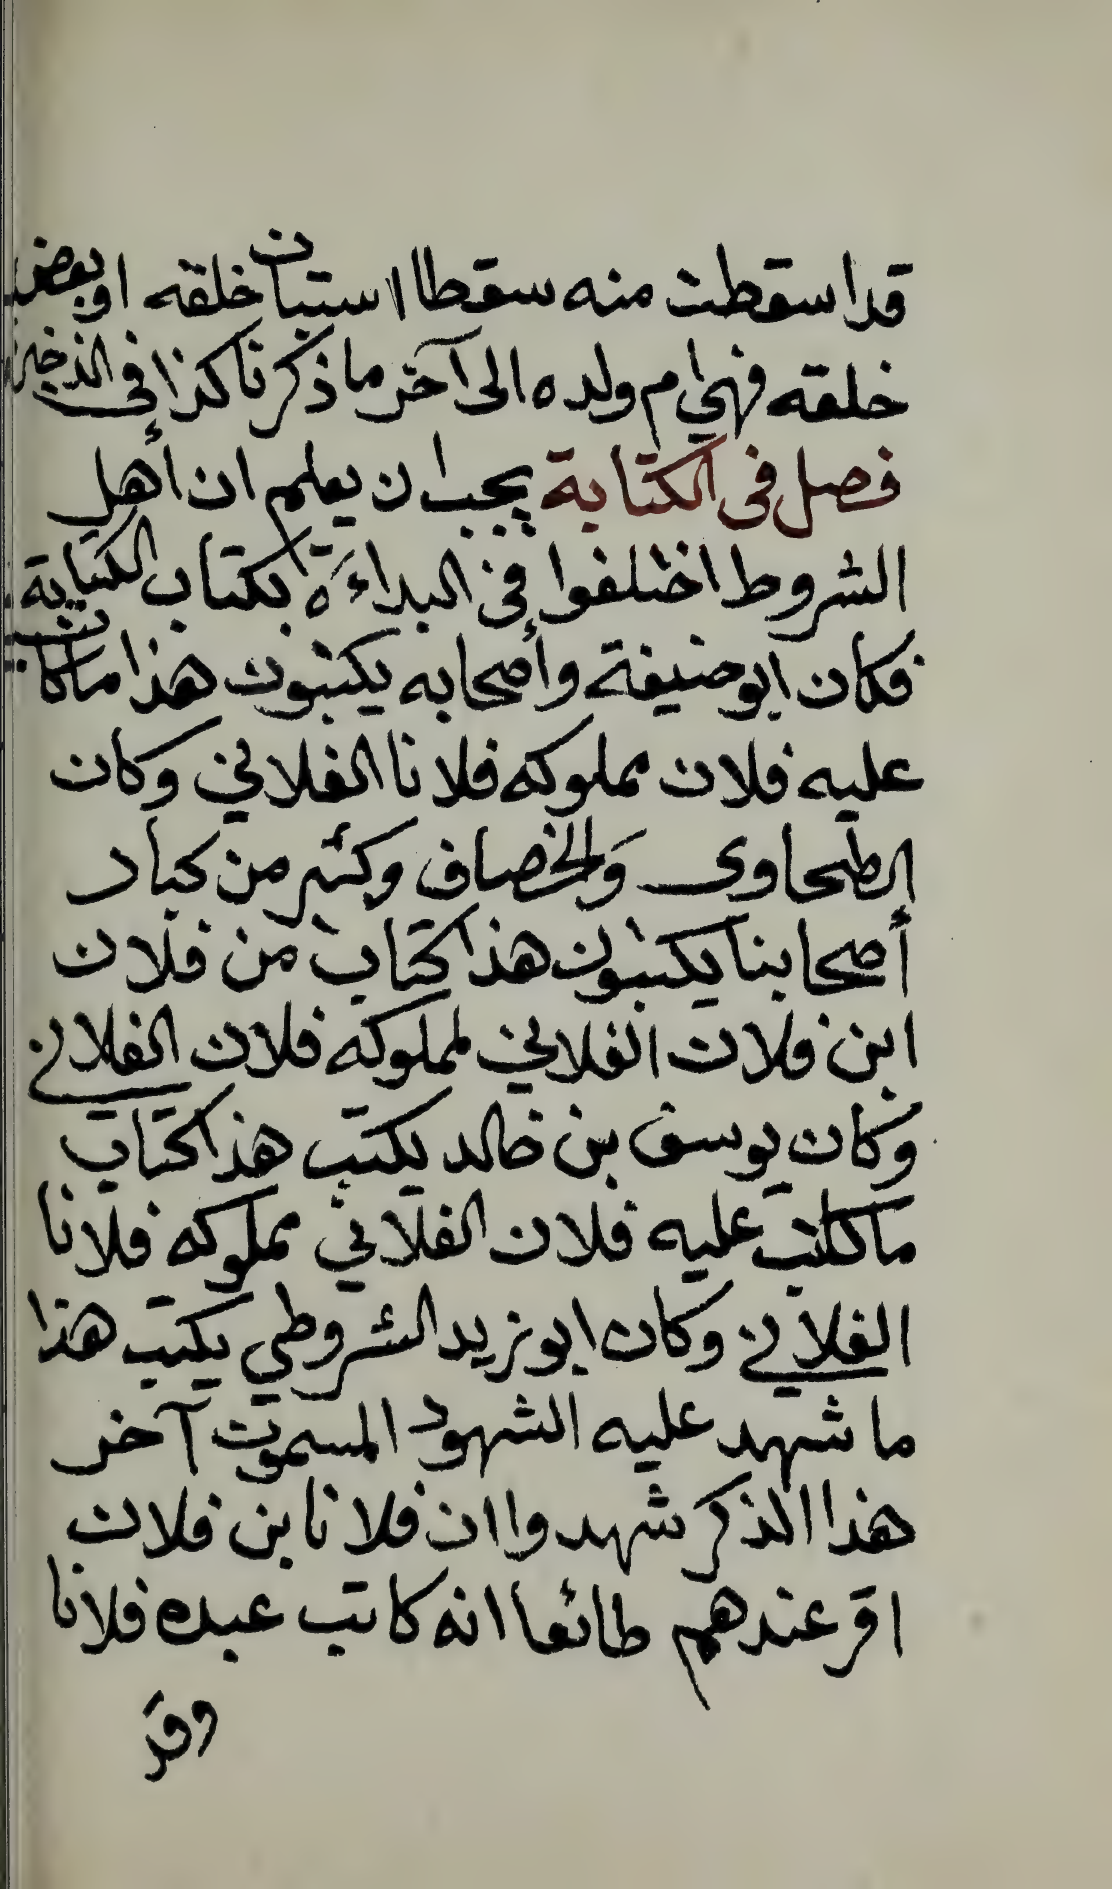 قد اسقطت منه سقطا استبان خلقه او بعض
خلقه فهي ام ولده الى آخر ما ذكرنا كذا في الذخيرة
فصل في الكتابة يجب ان يعلم ان أهل
الشروط اختلفوا في البداءة بكتاب الكتابة
فكان ابو حنيفة وأصحابه يكتبون هذا ما كاتب
عليه فلان مملوكه فلانا الفلاني وكان
الطحاوي والخصاف وكثير من كبار
أصحابنا يكتبون هذا كتاب من فلان
ابن فلان الفلاني لمملوكه فلان الفلاني
وكان يوسف بن خالد يكتب هذا كتاب
ما كاتب عليه فلان الفلاني مملوكه فلانا
الفلاني وكان ابو زيد الشروطي يكتب هذا
ما شهد عليه الشهود المسمون آخر
هذا الذكر شهدوا ان فلانا بن فلان
اقر عندهم طائعا انه كاتب عبده فلانا
وقد